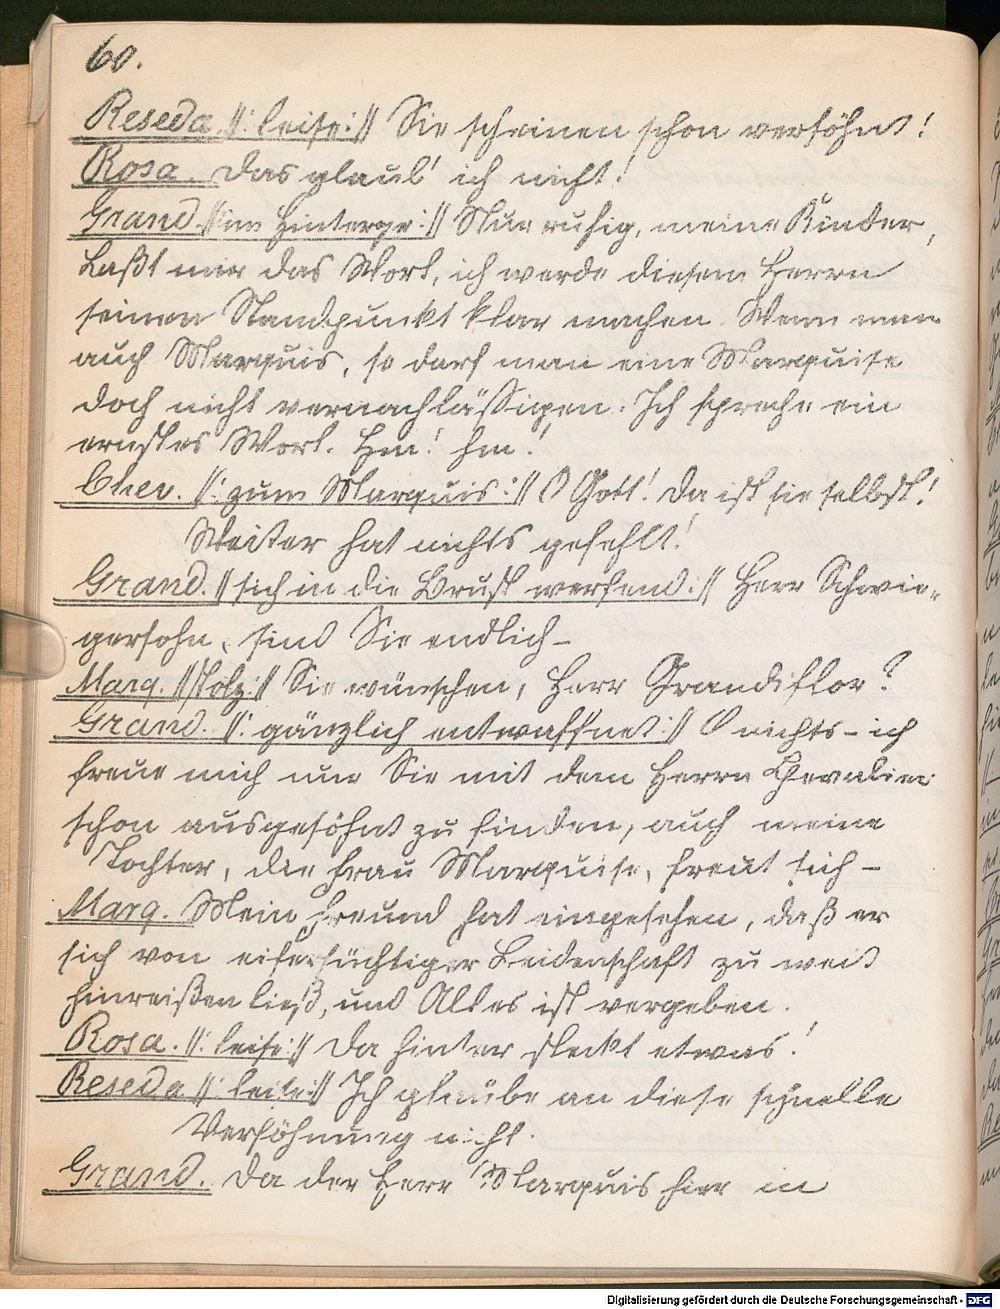 60.
Reseda //: leise :// Sie scheinen schon versöhnt!
Rosa. Das glaub' ich nicht!
Grand. //: im Hintergr :// Nur ruhig, meine Kinder,
Laßt mir das Wort, ich werde diesem Herrn
seinen Standpunkt klar machen. Wenn man
auch Marquis, so darf man eine Marquise
doch nicht vernachlässigen. Ich spreche ein
ernstes Wort. Hm! hm!
Chev. //: zum Marquis :// O Gott! da ist sie selbst!
Weiter hat nichts gefehlt!
Grand. // sich in die Brust werfend :// Herr Schwie-
gersohn, sind Sie endlich –
Marq. // stolz :// Sie wünschen, Herr Grandiflor?
Grand. //: gänzlich entwaffnet :// O nichts – ich
freue mich nur Sie mit dem Herrn Chevalier
schon ausgesöhnt zu finden, auch meine
Tochter, die Frau Marquise, freut sich –
Marq. Mein Freund hat eingesehen, daß er
sich von eifersüchtiger Leidenschaft zu weit
hinreißen ließ, und Alles ist vergeben.
Rosa. //: leise :// Da hinter steckt etwas!
Reseda //: leise :// Ich glaube an diese schnelle
Versöhnung nicht.
Grand. Da der Herr Marquis hier in
Digitalisierung gefördert durch die Deutsche Forschungsgemeinschaft - DFG